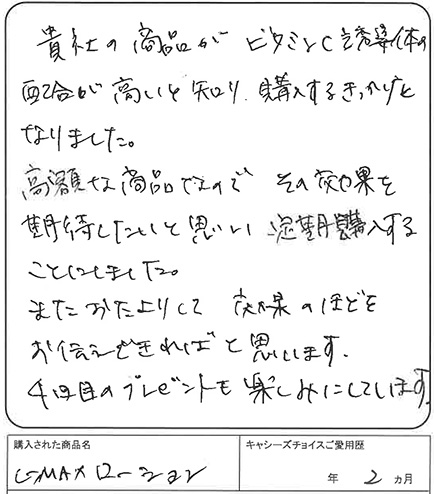 貴社の商品が ビタミンC誘導体の
配合が高いと知り、購入するきっかけと
なりました。
高額な商品なので その効果を
期待したいと思い 定期購入する
ことにしました。
またおたよりして 効果のほどを
お伝えできればと思います。
4回目のプレゼントも楽しみにしています。
購入された商品名
C-MAXローション
キャシーズチョイスご愛用歴
年 2 カ月